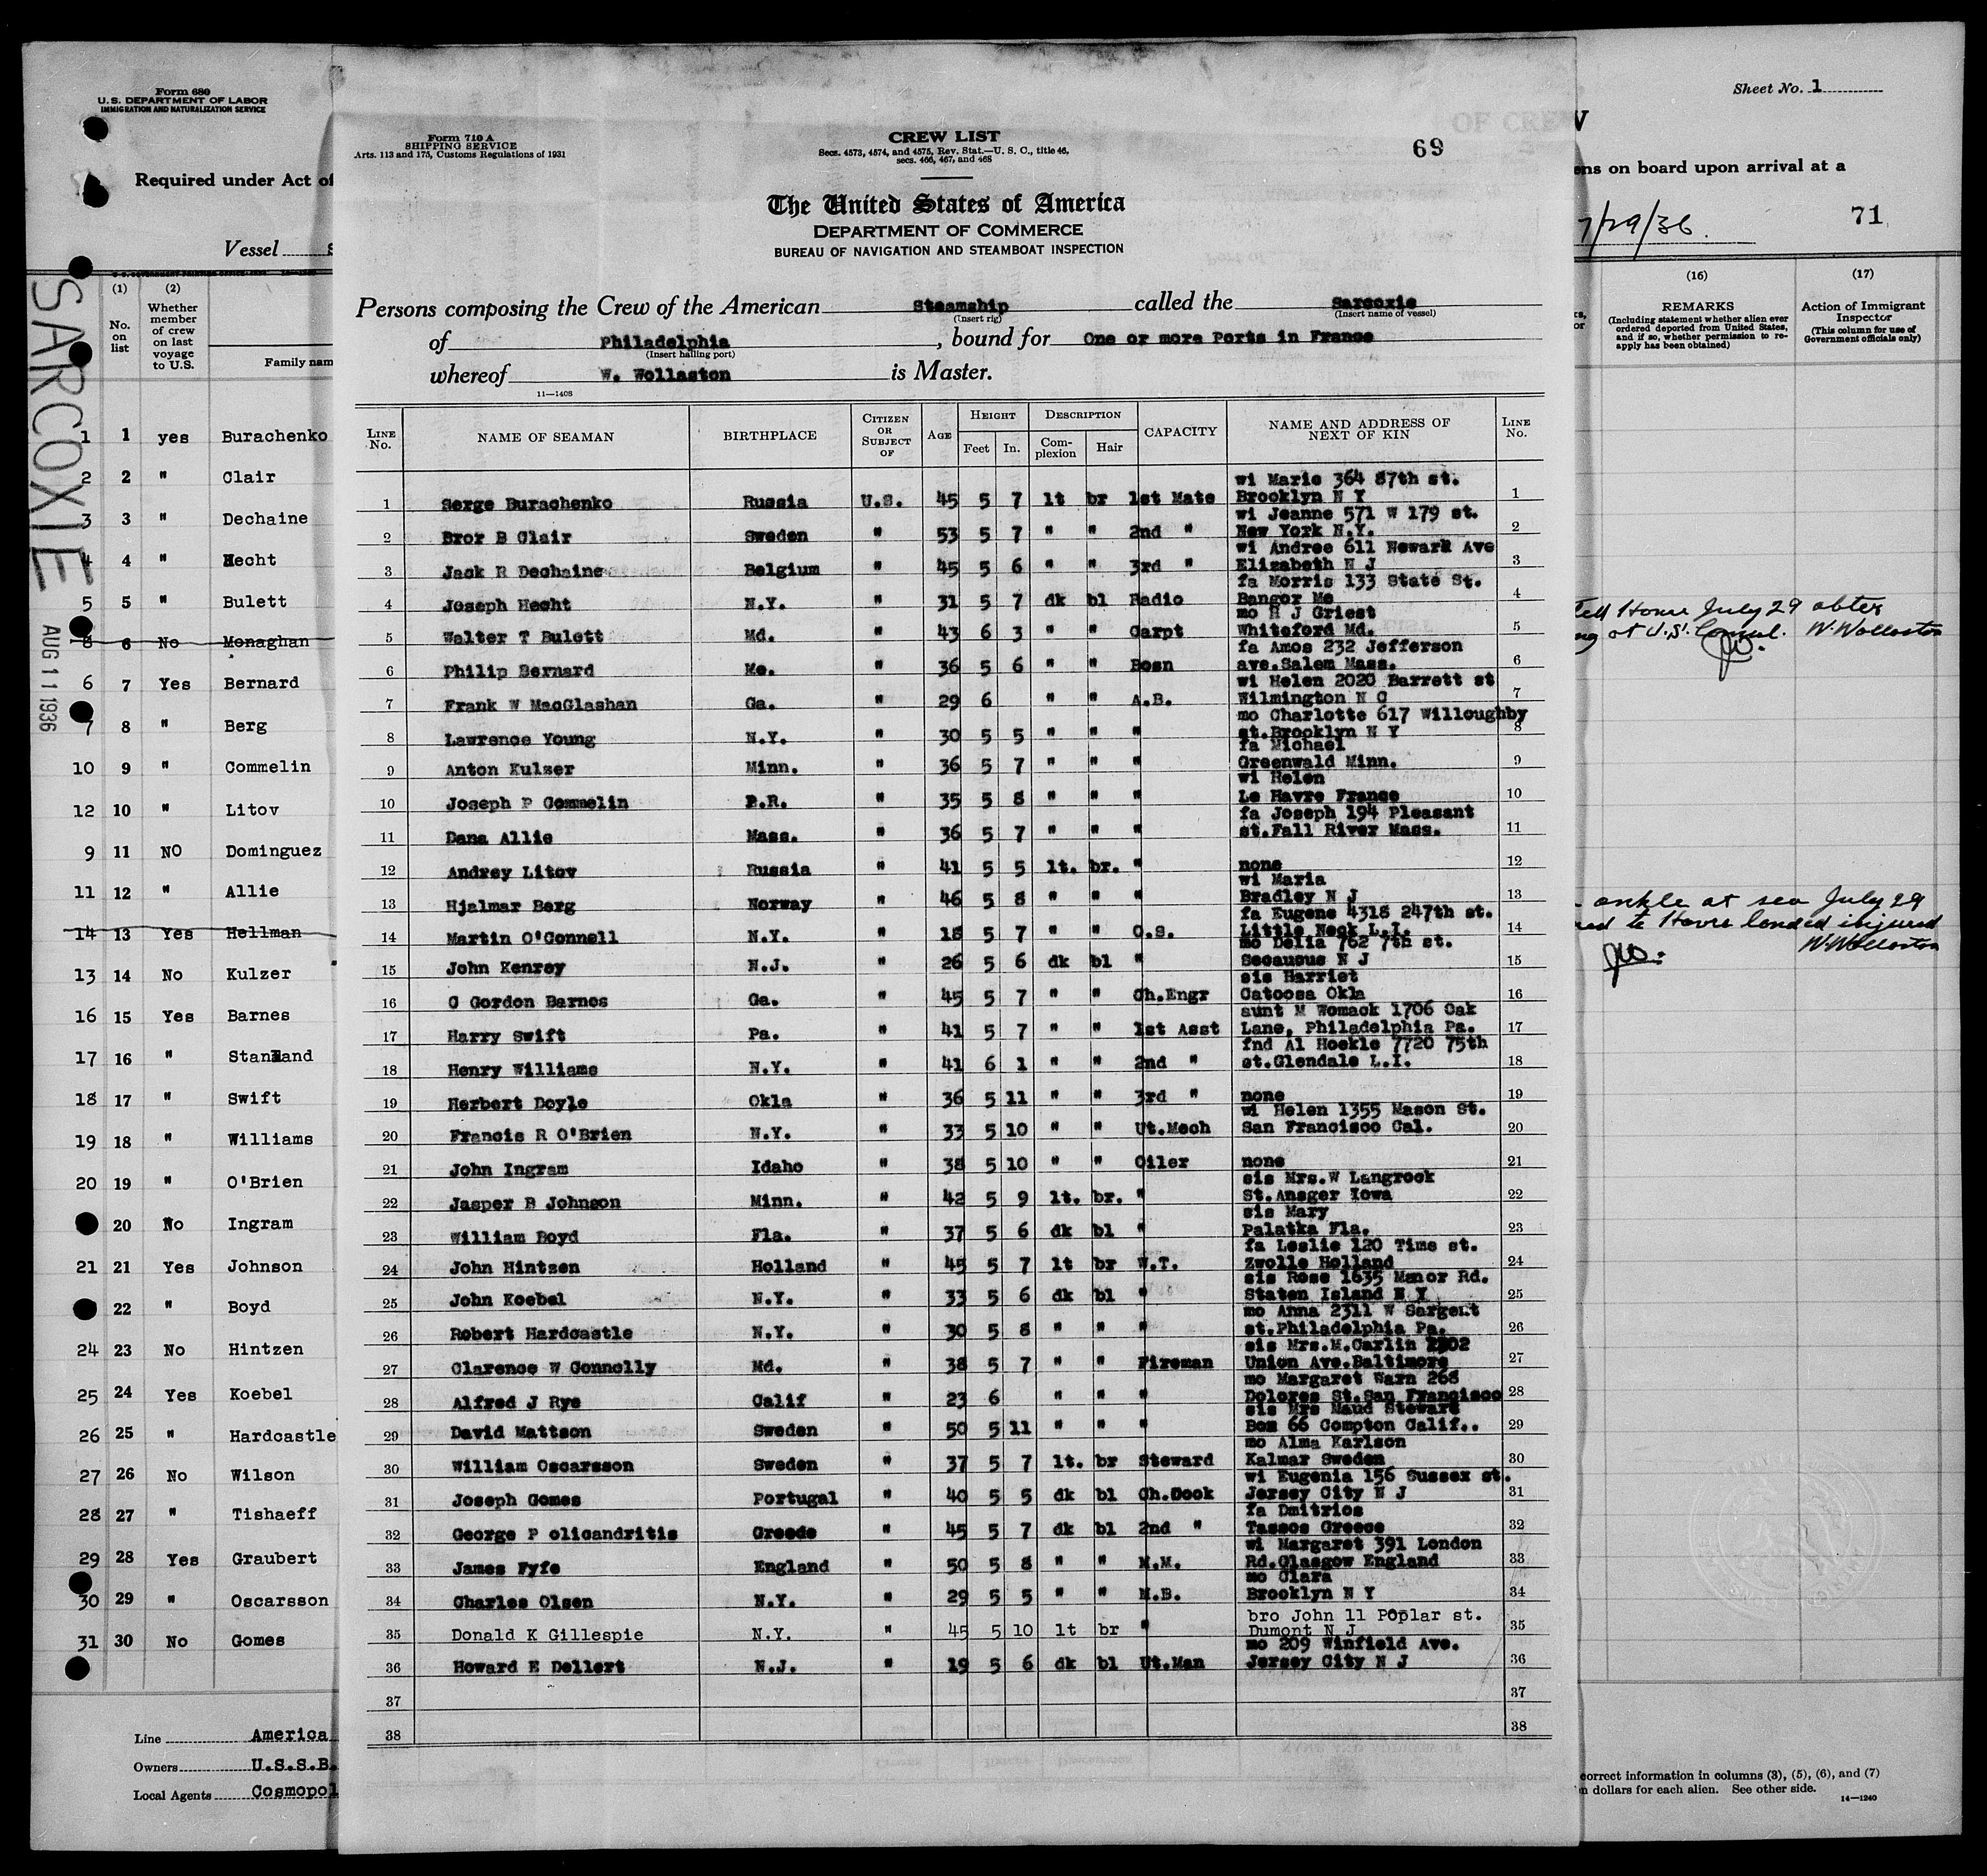 Form 680
U.S. DEPARTMENT OF LABOR
IMMIGRATION AND NATURALIZATION SERVICE
Required under Act of
Vessel S
(1) (2)
No. on list
Whether member of crew on last voyage to U.S.
Family nam
SARCOXIE
AUG 11 1936
1 1 yes Burachenko
2 2 " Clair
3 3 " Dechaine
4 4 " Hecht
5 5 " Bulett
6 No Monaghan
6 7 Yes Bernard
7 8 " Berg
10 9 " Commelin
12 10 " Litov
9 11 NO Dominguez
11 12 " Allie
14 13 Yes Hellman
13 14 No Kulzer
16 15 Yes Barnes
17 16 " Stanland
18 17 " Swift
19 18 " Williams
20 19 " O'Brien
20 No Ingram
21 21 Yes Johnson
22 " Boyd
24 23 No Hintzen
25 24 Yes Koebel
26 25 " Hardcastle
27 26 No Wilson
28 27 " Tishaeff
29 28 Yes Graubert
30 29 " Oscarsson
31 30 No Gomes
Line America
Owners U.S.S.B.
Local Agents Cosmopol
Form 710 A
SHIPPING SERVICE
Arts. 113 and 175, Customs Regulations of 1931
CREW LIST
Secs. 4573, 4574, and 4575, Rev. Stat.—U. S. C., title 46,
secs. 466, 467, and 468
69
The United States of America
DEPARTMENT OF COMMERCE
BUREAU OF NAVIGATION AND STEAMBOAT INSPECTION
Persons composing the Crew of the American Steamship called the Sarcoxie
(Insert rig) (Insert name of vessel)
of Philadelphia, bound for One or more Ports in France
(Insert hailing port)
whereof W. Wollaston is Master.
11—1408
LINE No. NAME OF SEAMAN BIRTHPLACE CITIZEN OR SUBJECT OF AGE HEIGHT Feet In. DESCRIPTION Complexion Hair CAPACITY NAME AND ADDRESS OF NEXT OF KIN LINE No.
wi Marie 364 87th st.
1 Serge Burachenko Russia U.S. 45 5 7 lt br 1st Mate Brooklyn N Y 1
wi Jeanne 571 W 179 st.
2 Bror B Clair Sweden " 53 5 7 " " 2nd " New York N.Y. 2
wi Andree 611 Newark Ave
3 Jack R Dechaine Belgium " 45 5 6 " " 3rd " Elizabeth N J 3
fa Morris 133 State St.
4 Joseph Hecht N.Y. " 31 5 7 dk bl Radio Bangor Me 4
mo H J Griest
5 Walter T Bulett Md. " 43 6 3 " " Carpt Whiteford Md. 5
fa Amos 232 Jefferson
6 Philip Bernard Me. " 36 5 6 " " Bosn ave.Salem Mass. 6
wi Helen 2020 Barrett st
7 Frank W MacGlashan Ga. " 29 6 " " A.B. Wilmington N C 7
mo Charlotte 617 Willoughby
8 Lawrence Young N.Y. " 30 5 5 " " " st.Brooklyn N Y 8
fa Michael
9 Anton Kulzer Minn. " 36 5 7 " " " Greenwald Minn. 9
wi Helen
10 Joseph P Commelin P.R. " 35 5 8 " " " Le Havre France 10
fa Joseph 194 Pleasant
11 Dana Allie Mass. " 36 5 7 " " " st.Fall River Mass. 11
12 Andrey Litov Russia " 41 5 5 lt. br. " none 12
wi Maria
13 Hjalmar Berg Norway " 46 5 8 " " " Bradley N J 13
fa Eugene 4318 247th st.
14 Martin O'Connell N.Y. " 18 5 7 " " O.S. Little Neck L.I. 14
mo Delia 762 7th st.
15 John Kenrey N.J. " 26 5 6 dk bl " Secaucus N J 15
sis Harriet
16 C Gordon Barnes Ga. " 45 5 7 " " Ch.Engr Catoosa Okla 16
aunt M Womack 1706 Oak
17 Harry Swift Pa. " 41 5 7 " " 1st Asst Lane, Philadelphia Pa. 17
fnd Al Hoekle 7720 75th
18 Henry Williams N.Y. " 41 6 1 " " 2nd " st.Glendale L.I. 18
19 Herbert Doyle Okla " 36 5 11 " " 3rd " none 19
wi Helen 1355 Mason St.
20 Francis R O'Brien N.Y. " 33 5 10 " " Ut.Mech San Francisco Cal. 20
21 John Ingram Idaho " 38 5 10 " " Oiler none 21
sis Mrs.W Langrock
22 Jasper B Johnson Minn. " 42 5 9 lt. br. " St.Ansger Iowa 22
sis Mary
23 William Boyd Fla. " 37 5 6 dk bl " Palatka Fla. 23
fa Leslie 120 Time st.
24 John Hintzen Holland " 45 5 7 lt br W.T. Zwolle Holland 24
sis Rose 1635 Manor Rd.
25 John Koebel N.Y. " 33 5 6 dk bl " Staten Island N Y 25
mo Anna 2311 W Sargent
26 Robert Hardcastle N.Y. " 30 5 8 " " " st.Philadelphia Pa. 26
sis Mrs.M.Carlin 2302
27 Clarence W Connolly Md. " 38 5 7 " " Fireman Union Ave.Baltimore 27
mo Margaret Warn 268
28 Alfred J Rye Calif " 23 6 " " " Dolores St.San Francisco 28
sis Mrs Maud Steward
29 David Mattson Sweden " 50 5 11 " " " Box 66 Compton Calif.. 29
mo Alma Karlson
30 William Oscarsson Sweden " 37 5 7 lt. br Steward Kalmar Sweden 30
wi Eugenia 156 Sussex st.
31 Joseph Gomes Portugal " 40 5 5 dk bl Ch.Cook Jersey City N J 31
fa Dmitrios
32 George P olicandritis Greece " 45 5 7 dk bl 2nd " Tassos Greece 32
wi Margaret 391 London
33 James Fyfe England " 50 5 8 " " M.M. Rd.Glasgow England 33
mo Clara
34 Charles Olsen N.Y. " 29 5 5 " " M.B. Brooklyn N Y 34
bro John 11 Poplar st.
35 Donald K Gillespie N.Y. " 45 5 10 lt br " Dumont N J 35
mo 209 Winfield Ave.
36 Howard E Dellert N.J. " 19 5 6 dk bl Ut.Man Jersey City N J 36
37 37
38 38
Sheet No. 1
W
ens on board upon arrival at a
7/29/36.
71
(16) (17)
REMARKS
(Including statement whether alien ever ordered deported from United States, and if so, whether permission to reapply has been obtained)
Action of Immigrant Inspector
(This column for use of Government officials only)
July 29
at U.S. Consul. W. Wollaston
ankle at sea July 29
to Havre landed injured
W. Wollaston
correct information in columns (3), (5), (6), and (7)
n dollars for each alien. See other side.
14—1240